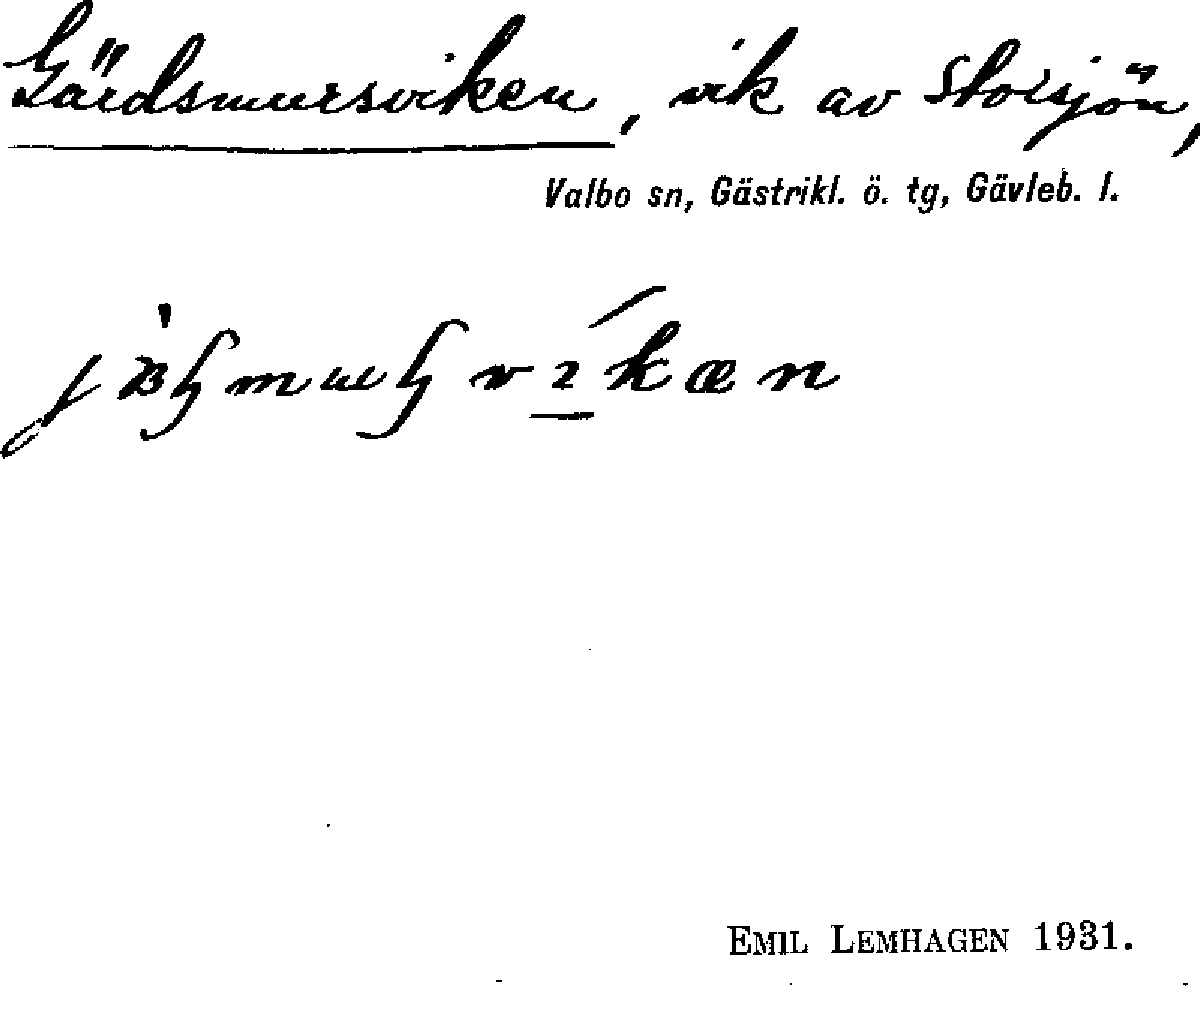 Gärdsmursviken, vik av Storsjön,
Valbo sn, Gästrikl. ö. tg, Gävleb. l.
EMIL LEMHAGEN 1931.